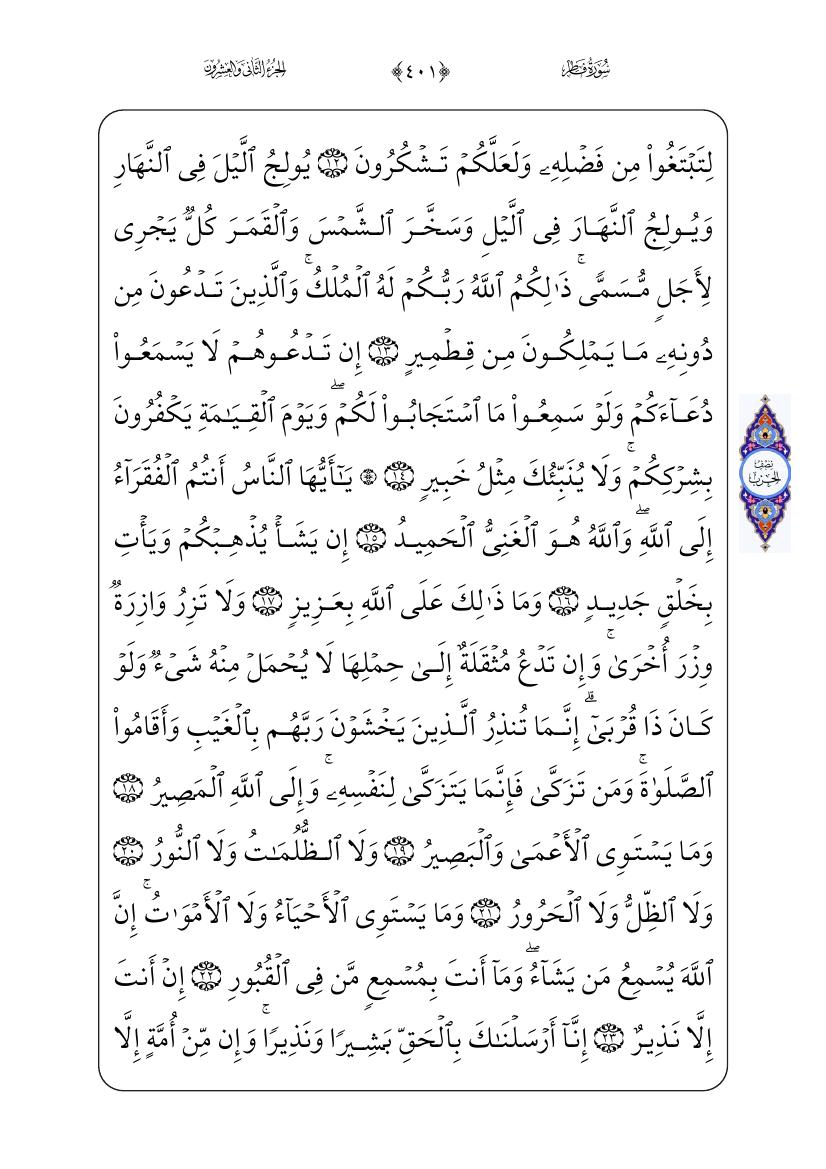 سُورَةُ فَاطِر
﴿٤٠١﴾
الجُزءُ الثَّانِي وَالعِشْرُونَ
لِتَبۡتَغُواْ مِن فَضۡلِهِۦ وَلَعَلَّكُمۡ تَشۡكُرُونَ ١٢ يُولِجُ ٱلَّيۡلَ فِى ٱلنَّهَارِ
وَيُولِجُ ٱلنَّهَارَ فِى ٱلَّيۡلِ وَسَخَّرَ ٱلشَّمۡسَ وَٱلۡقَمَرَ كُلٌّ يَجۡرِى
لِأَجَلٍ مُّسَمًّى ۚ ذَٰلِكُمُ ٱللَّهُ رَبُّكُمۡ لَهُ ٱلۡمُلۡكُ ۚ وَٱلَّذِينَ تَدۡعُونَ مِن
دُونِهِۦ مَا يَمۡلِكُونَ مِن قِطۡمِيرٍ ١٣ إِن تَدۡعُوهُمۡ لَا يَسۡمَعُواْ
دُعَآءَكُمۡ وَلَوۡ سَمِعُواْ مَا ٱسۡتَجَابُواْ لَكُمۡ ۖ وَيَوۡمَ ٱلۡقِيَٰمَةِ يَكۡفُرُونَ
بِشِرۡكِكُمۡ ۚ وَلَا يُنَبِّئُكَ مِثۡلُ خَبِيرٍ ١٤ ۞ يَٰٓأَيُّهَا ٱلنَّاسُ أَنتُمُ ٱلۡفُقَرَآءُ
نِصْفُ
الحِزْبِ
إِلَى ٱللَّهِ ۖ وَٱللَّهُ هُوَ ٱلۡغَنِىُّ ٱلۡحَمِيدُ ١٥ إِن يَشَأۡ يُذۡهِبۡكُمۡ وَيَأۡتِ
بِخَلۡقٍ جَدِيدٍ ١٦ وَمَا ذَٰلِكَ عَلَى ٱللَّهِ بِعَزِيزٍ ١٧ وَلَا تَزِرُ وَازِرَةٌ
وِزۡرَ أُخۡرَىٰ ۚ وَإِن تَدۡعُ مُثۡقَلَةٌ إِلَىٰ حِمۡلِهَا لَا يُحۡمَلۡ مِنۡهُ شَىۡءٌ وَلَوۡ
كَانَ ذَا قُرۡبَىٰٓ ۗ إِنَّمَا تُنذِرُ ٱلَّذِينَ يَخۡشَوۡنَ رَبَّهُم بِٱلۡغَيۡبِ وَأَقَامُواْ
ٱلصَّلَوٰةَ ۚ وَمَن تَزَكَّىٰ فَإِنَّمَا يَتَزَكَّىٰ لِنَفۡسِهِۦ ۚ وَإِلَى ٱللَّهِ ٱلۡمَصِيرُ ١٨
وَمَا يَسۡتَوِى ٱلۡأَعۡمَىٰ وَٱلۡبَصِيرُ ١٩ وَلَا ٱلظُّلُمَٰتُ وَلَا ٱلنُّورُ ٢٠
وَلَا ٱلظِّلُّ وَلَا ٱلۡحَرُورُ ٢١ وَمَا يَسۡتَوِى ٱلۡأَحۡيَآءُ وَلَا ٱلۡأَمۡوَٰتُ ۚ إِنَّ
ٱللَّهَ يُسۡمِعُ مَن يَشَآءُ ۖ وَمَآ أَنتَ بِمُسۡمِعٍ مَّن فِى ٱلۡقُبُورِ ٢٢ إِنۡ أَنتَ
إِلَّا نَذِيرٌ ٢٣ إِنَّآ أَرۡسَلۡنَٰكَ بِٱلۡحَقِّ بَشِيرًا وَنَذِيرًا ۚ وَإِن مِّنۡ أُمَّةٍ إِلَّا